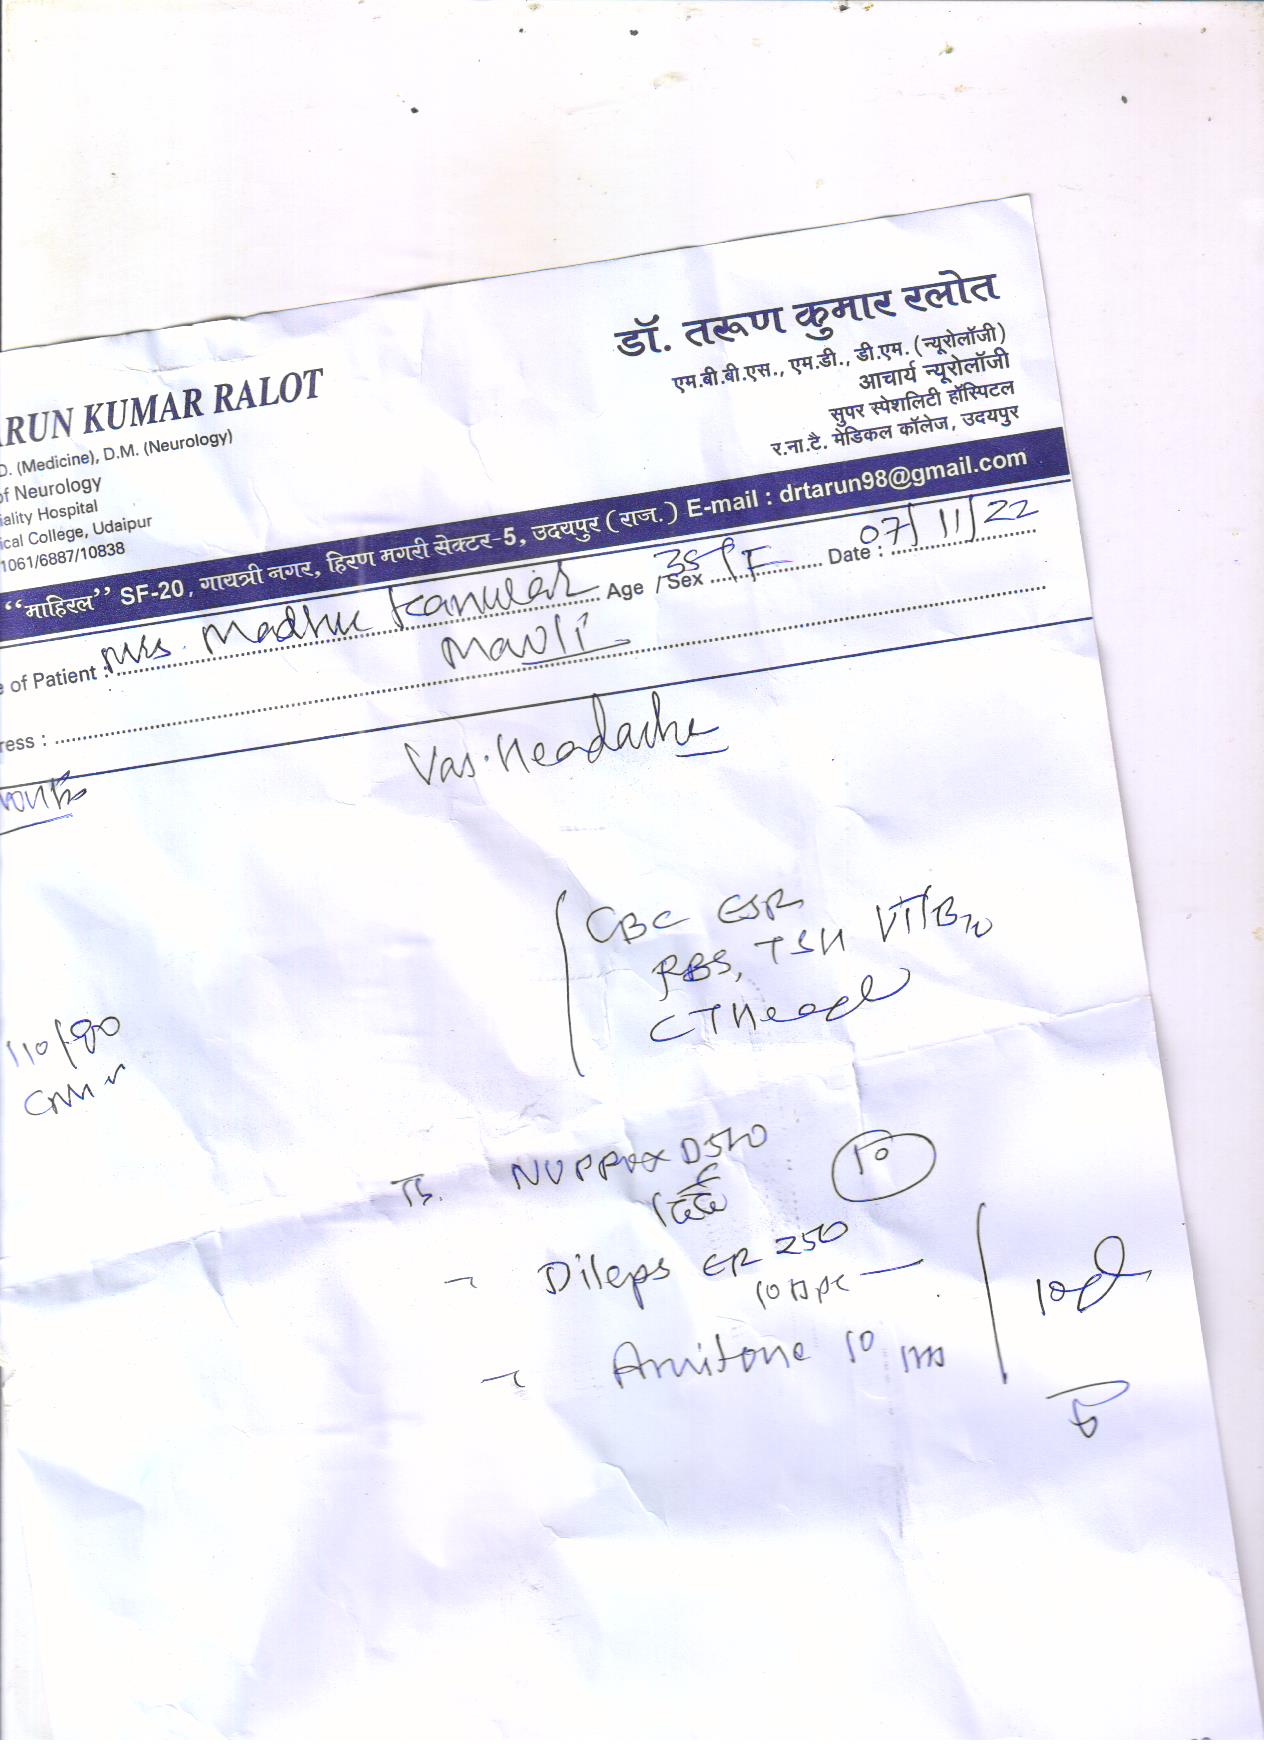 डॉ. तरूण कुमार रलोत
एम.बी.बी.एस., एम.डी., डी.एम. (न्यूरोलॉजी)
आचार्य न्यूरोलॉजी
सुपर स्पेशलिटी हॉस्पिटल
र.ना.टै. मेडिकल कॉलेज, उदयपुर
ARUN KUMAR RALOT
D. (Medicine), D.M. (Neurology)
of Neurology
iality Hospital
ical College, Udaipur
1061/6887/10838
“माहिरल” SF-20, गायत्री नगर, हिरण मगरी सेक्टर-5, उदयपुर (राज.) E-mail : drtarun98@gmail.com
e of Patient : Mrs. Madhu Kanwar Age / Sex 35 / F Date : 07/11/22
ress : Mavli
Vas. Headache
CBC ESR
RBS, TSH VitB12
CT Head
110/80
Tb. D 500 10
Dileps ER 250
Amitone 10 10d